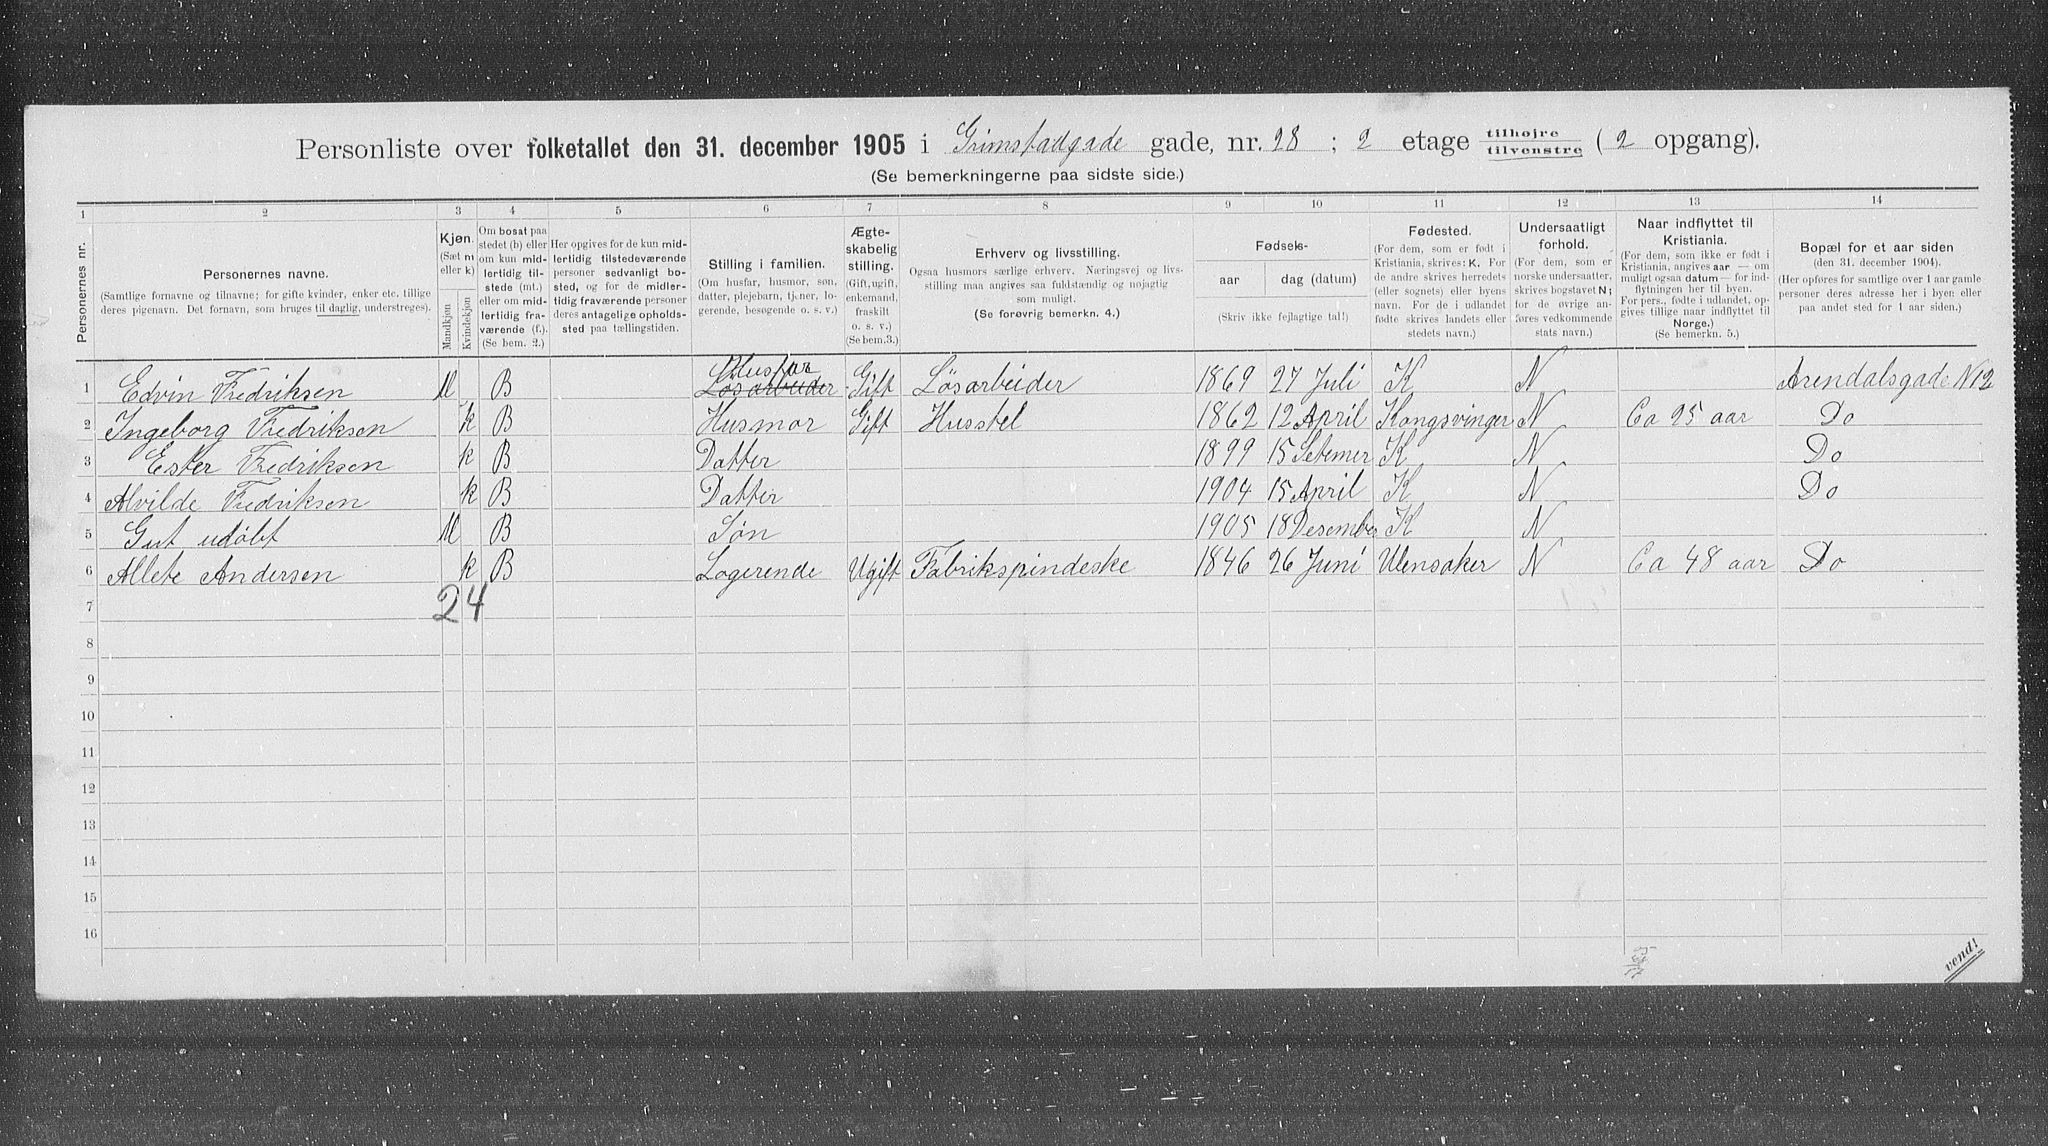 Personliste over folketallet den 31. december 1905 i Grimstadgade gade, nr. 28 ; 2 etage tilhøjre tilvenstre ( 2 opgang).
(Se bemerkningerne paa sidste side.)
1 2 3 4 5 6 7 8 9 10 11 12 13 14
Personernes nr.
Personernes navne.
(Samtlige fornavne og tilnavne; for gifte kvinder, enker etc. tillige
deres pigenavn. Det fornavn, som bruges til daglig, understreges).
Kjøn.
(Sæt m
eller k)
Mandkjøn
Kvindekjøn
Om bosat paa
stedet (b) eller
om kun mid-
lertidig til-
stede (mt.)
eller om mid-
lertidig fra-
værende (f.).
(Se bem. 2.)
Her opgives for de kun mid-
lertidig tilstedeværende
personer sedvanligt bo-
sted, og for de midler-
tidig fraværende personer
deres antagelige opholds-
sted paa tællingstiden.
Stilling i familien.
(Om husfar, husmor, søn,
datter, plejebarn, tjener, lo-
gerende, besøgende o. s. v.)
Ægte-
skabelig
stilling.
(Gift, ugift,
enkemand,
fraskilt
o. s. v.)
(Se bem.3.)
Erhverv og livsstilling.
Ogsaa husmors særlige erhverv. Næringsvej og livs-
stilling maa angives saa fuldstændig og nøjagtig
som muligt.
(Se forøvrig bemerkn. 4.)
Fødsels-
aar dag (datum)
(Skriv ikke fejlagtige tal!)
Fødested.
(For dem, som er født i
Kristiania, skrives: K. For
de andre skrives herredets
(eller sognets) eller byens
navn. For de i udlandet
fødte skrives landets eller
stedets navn.)
Undersaatligt
forhold.
(For dem, som er
norske undersaatter,
skrives bogstavet N;
for de øvrige an-
føres vedkommende
stats navn.)
Naar indflyttet til
Kristiania.
(For dem, som ikke er født i
Kristiania, angives aar — om
muligt ogsaa datum — for ind-
flytningen her til byen.
For pers., fødte i udlandet, op-
gives tillige naar indflyttet til
Norge.)
(Se bemerkn. 5.)
Bopæl for et aar siden
(den 31. december 1904).
(Her opføres for samtlige over 1 aar gamle
personer deres adresse her i byen eller
paa andet sted for 1 aar siden.)
Husfar
1 Edvin Fredriksen M B Løsarbeider Gift Løsarbeider 1869 27 Juli K N Arendalsgade N 12
2 Ingeborg Fredriksen k B Husmor Gift Husstel 1862 12 April Kongsvinger N Ca 25 aar Do
3 Ester Fredriksen k B Datter 1899 15 Setemer K N Do
4 Alvilde Fredriksen k B Datter 1904 15 April K N Do
5 Gut udøbt M B Søn 1905 18 Desember K N
6 Allete Andersen k B Logerende Ugift Fabrikspindeske 1846 26 Juni Ulensaker N Ca 48 aar Do
7 24
8
9
10
11
12
13
14
15
16
vend!